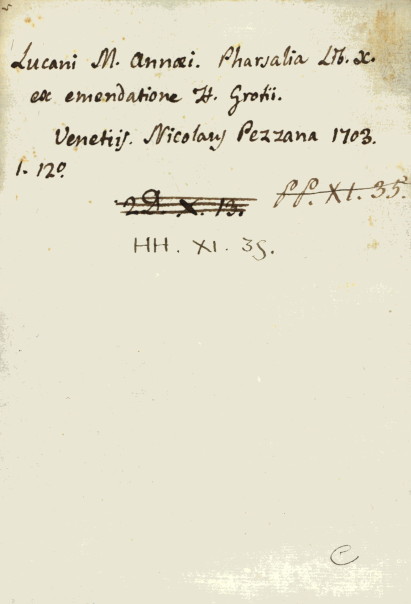 Lucani M. Annæi. Pharsalia Lib. X.
ex emendatione H. Grotii.
Venetiis. Nicolaus Pezzana 1703.
1. 12º.
PP. XI. 35.
X. 13.
HH. XI. 35.
C